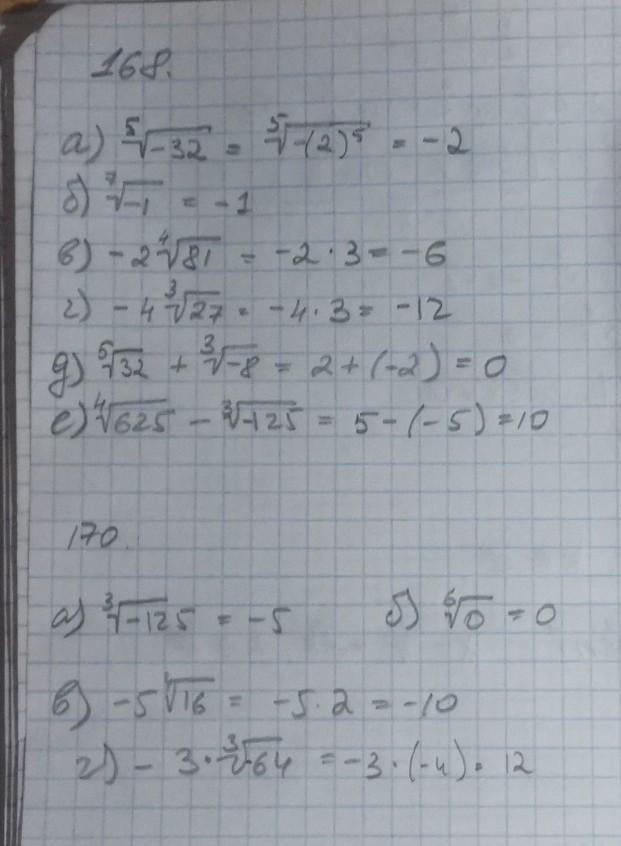 168.
а) ⁵√-32 = ⁵√-(2)⁵ = -2
б) ⁷√-1 = -1
в) -2 ⁴√81 = -2·3 = -6
г) -4 ³√27 = -4·3 = -12
д) ⁵√32 + ³√-8 = 2+(-2) = 0
е) ⁴√625 - ³√-125 = 5-(-5) = 10
170.
а) ³√-125 = -5 б) ⁶√0 = 0
в) -5 ⁴√16 = -5·2 = -10
г) - 3·³√-64 = -3·(-4) = 12